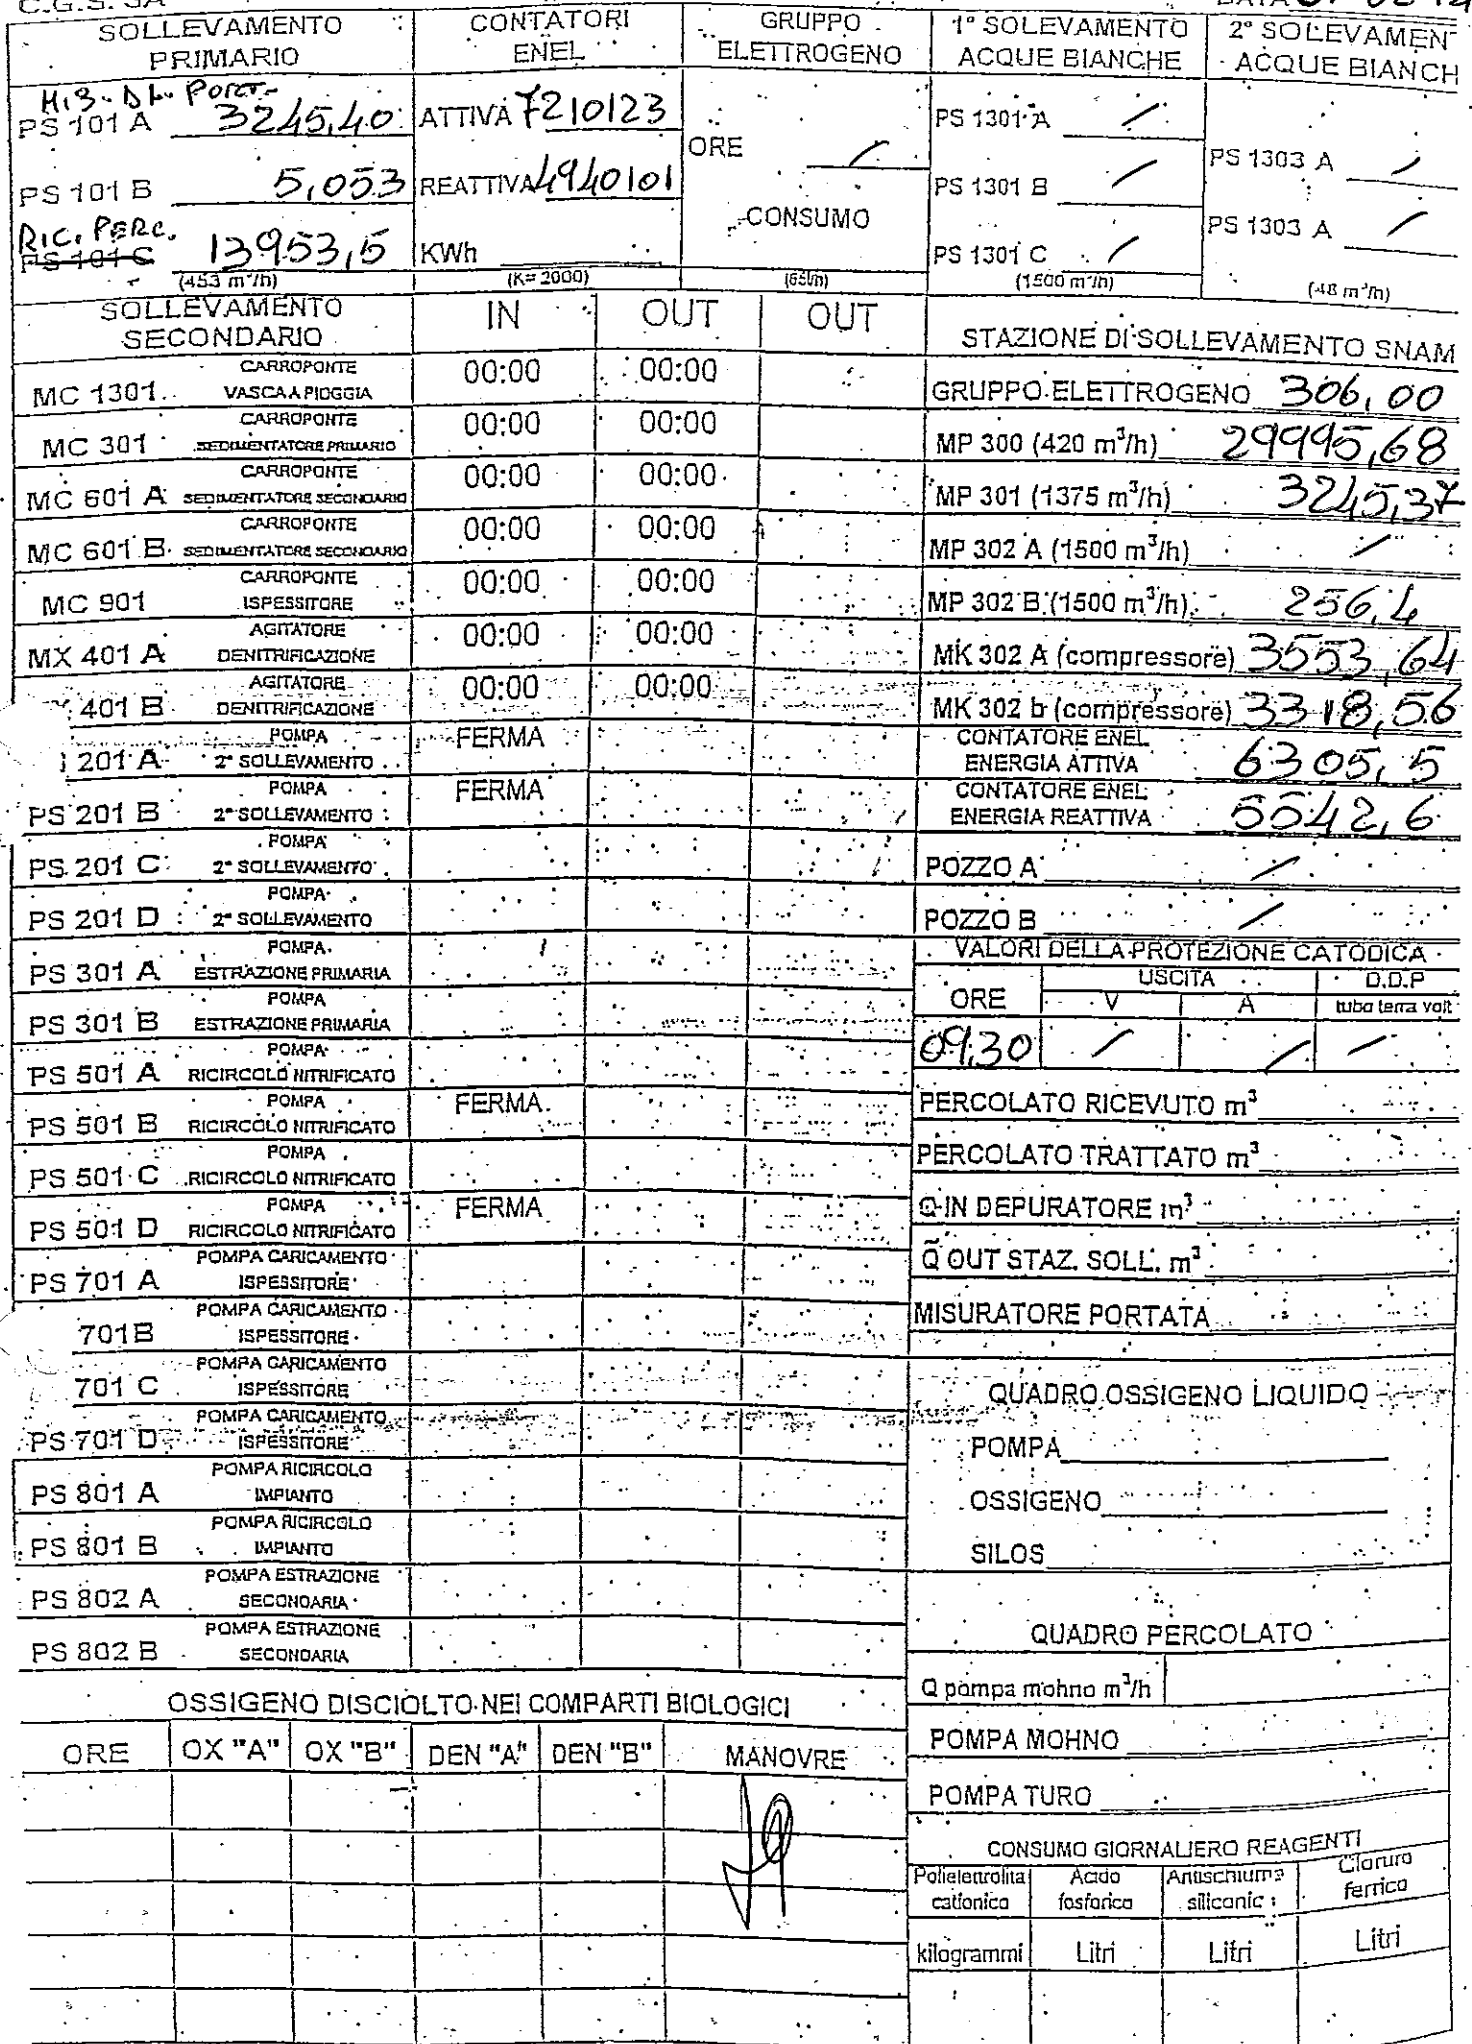 SOLLEVAMENTO PRIMARIO
CONTATORI ENEL
GRUPPO ELETTROGENO
1° SOLEVAMENTO ACQUE BIANCHE
2° SOLEVAMEN ACQUE BIANCH
MIS. DI PORT.
PS 101 A 3245,40
ATTIVA 7210123
ORE /
PS 1301 A /
PS 1303 A /
PS 101 B 5,053
REATTIVA 4940101
CONSUMO
PS 1301 B /
PS 1303 A /
RIC. PERC.
PS 101 C 13953,5
KWh
PS 1301 C /
(453 m³/h)
(K= 2000)
(65l/h)
(1500 m³/h)
(48 m³/h)
SOLLEVAMENTO SECONDARIO
IN OUT OUT
MC 1301 CARROPONTE VASCA A PIOGGIA 00:00 00:00
MC 301 CARROPONTE SEDIMENTATORE PRIMARIO 00:00 00:00
MC 601 A CARROPONTE SEDIMENTATORE SECONDARIO 00:00 00:00
MC 601 B CARROPONTE SEDIMENTATORE SECONDARIO 00:00 00:00
MC 901 CARROPONTE ISPESSITORE 00:00 00:00
MX 401 A AGITATORE DENITRIFICAZIONE 00:00 00:00
401 B AGITATORE DENITRIFICAZIONE 00:00 00:00
201 A POMPA 2° SOLLEVAMENTO FERMA
PS 201 B POMPA 2° SOLLEVAMENTO FERMA
PS 201 C POMPA 2° SOLLEVAMENTO
PS 201 D POMPA 2° SOLLEVAMENTO
PS 301 A POMPA ESTRAZIONE PRIMARIA
PS 301 B POMPA ESTRAZIONE PRIMARIA
PS 501 A POMPA RICIRCOLO NITRIFICATO
PS 501 B POMPA RICIRCOLO NITRIFICATO FERMA
PS 501 C POMPA RICIRCOLO NITRIFICATO
PS 501 D POMPA RICIRCOLO NITRIFICATO FERMA
PS 701 A POMPA CARICAMENTO ISPESSITORE
701B POMPA CARICAMENTO ISPESSITORE
701 C POMPA CARICAMENTO ISPESSITORE
PS 701 D POMPA CARICAMENTO ISPESSITORE
PS 801 A POMPA RICIRCOLO IMPIANTO
PS 801 B POMPA RICIRCOLO IMPIANTO
PS 802 A POMPA ESTRAZIONE SECONDARIA
PS 802 B POMPA ESTRAZIONE SECONDARIA
OSSIGENO DISCIOLTO NEI COMPARTI BIOLOGICI
ORE OX "A" OX "B" DEN "A" DEN "B" MANOVRE
STAZIONE DI SOLLEVAMENTO SNAM
GRUPPO ELETTROGENO 306,00
MP 300 (420 m³/h) 29995,68
MP 301 (1375 m³/h) 3245,37
MP 302 A (1500 m³/h) /
MP 302 B (1500 m³/h) 256,4
MK 302 A (compressore) 3553,64
MK 302 b (compressore) 3318,56
CONTATORE ENEL ENERGIA ATTIVA 6305,5
CONTATORE ENEL ENERGIA REATTIVA 5542,6
POZZO A /
POZZO B /
VALORI DELLA PROTEZIONE CATODICA
ORE USCITA D.D.P
V A tubo terra volt
09,30 / / /
PERCOLATO RICEVUTO m³
PERCOLATO TRATTATO m³
Q IN DEPURATORE m³
Q OUT STAZ. SOLL. m³
MISURATORE PORTATA
QUADRO OSSIGENO LIQUIDO
POMPA
OSSIGENO
SILOS
QUADRO PERCOLATO
Q pompa mohno m³/h
POMPA MOHNO
POMPA TURO
CONSUMO GIORNALIERO REAGENTI
Polieletrolita cationico
Acido fosforico
Antischiuma siliconic
Cloruro ferrico
kilogrammi Litri Litri Litri